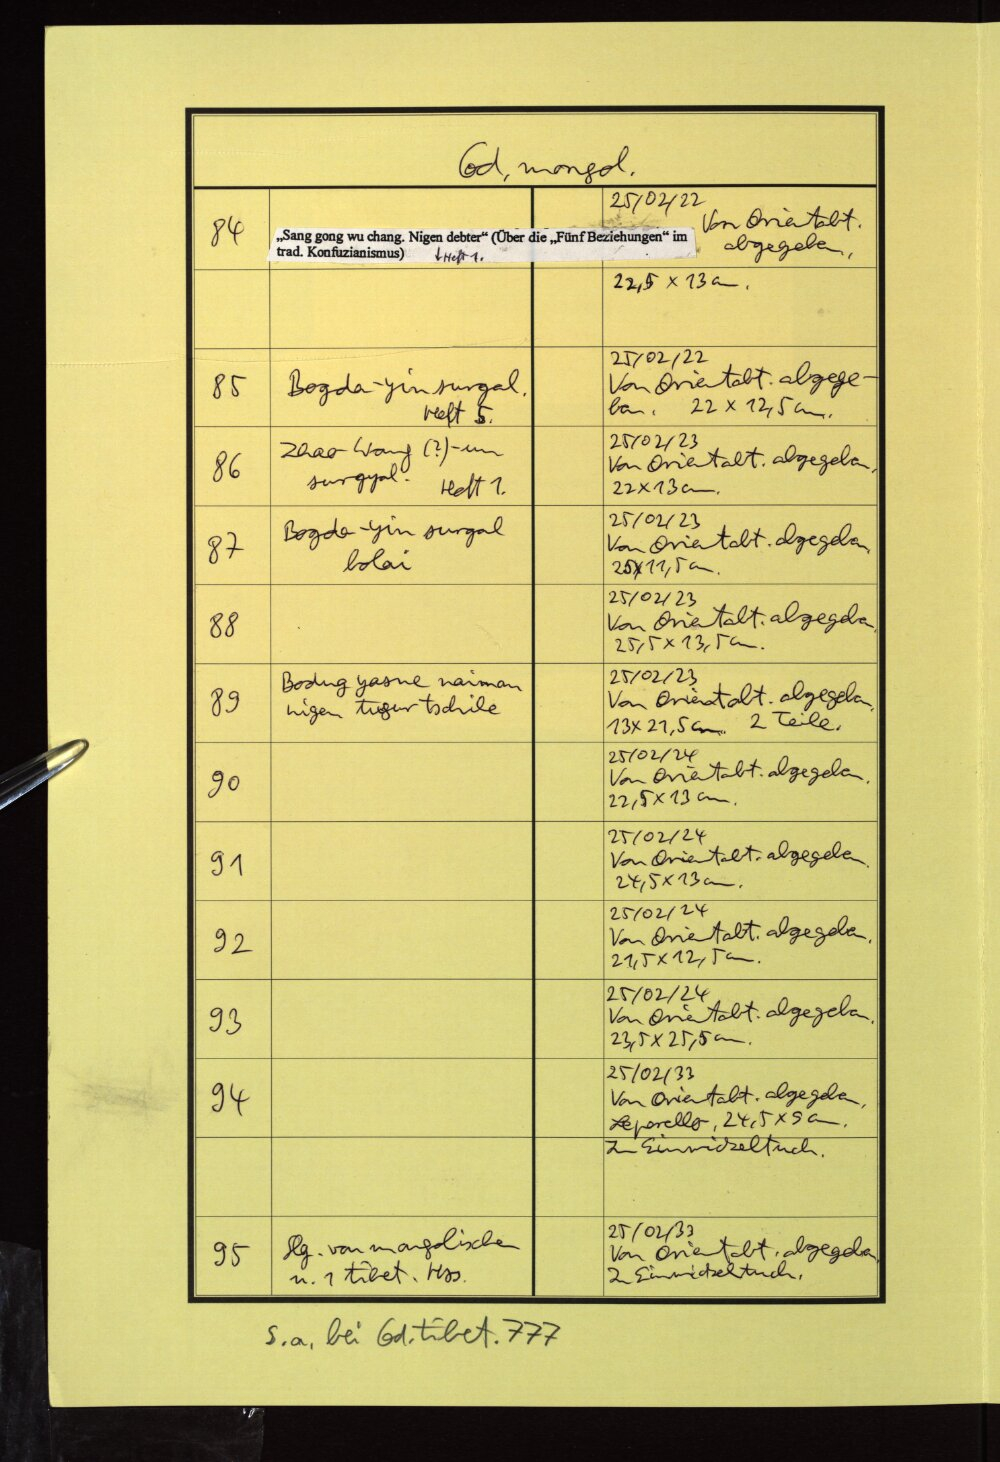 Cod. mongol.
84
„Sang gong wu chang. Nigen debter“ (Über die „Fünf Beziehungen“ im
trad. Konfuzianismus) ↓ Heft 1.
25/02/22
Von Orientabt.
abgegeben.
22,5 x 13 cm.
85
Bogda-yin surgal.
Heft 5.
25/02/22
Von Orientabt. abgege-
ben. 22 x 12,5 cm.
86
Zhao Wang (?)-un
surgyal. Heft 1.
25/02/23
Von Orientabt. abgegeben.
22x13 cm.
87
Bogda-yin surgal
bolai
25/02/23
Von Orientabt. abgegeben.
25x11,5 cm.
88
25/02/23
Von Orientabt. abgegeben.
25,5 x 13,5 cm.
89
yasne naiman
nigen
25/02/23
Von Orientabt. abgegeben.
13x21,5 cm. 2 Teile.
90
25/02/24
Von Orientabt. abgegeben.
22,5x13 cm.
91
25/02/24
Von Orientabt. abgegeben.
24,5x13 cm.
92
25/02/24
Von Orientabt. abgegeben.
21,5x12,5 cm.
93
25/02/24
Von Orientabt. abgegeben.
23,5x25,5 cm.
94
25/02/33
Von Orientabt. abgegeben.
Leporello, 24,5x9 cm.
In Einwickeltuch.
95
Slg. von mongolischen
u. 1 tibet. Hss.
25/02/33
Von Orientabt. abgegeben.
In Einwickeltuch.
s.a. bei Cod.tibet.777